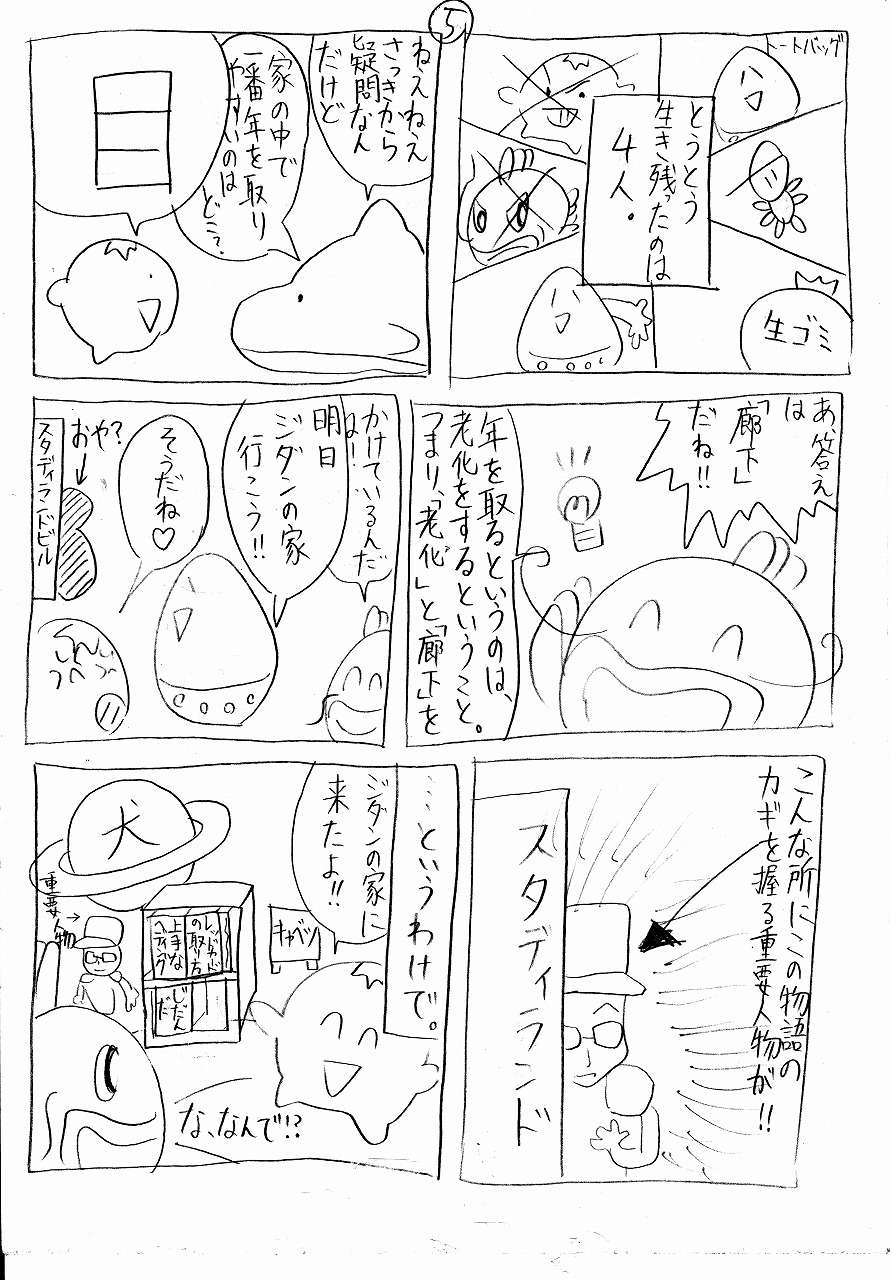 5
トートバッグ
とうとう
生き残ったのは
4人.
生ゴミ
ねえねえ
さっきから
疑問なん
だけど
家の中で
一番年を取り
やすいのは
どこ?
あ、答え
は
「廊下」
だね!!
年を取るというのは、
老化をするということ。
つまり、「老化」と「廊下」を
かけているんだ
ね!
明日
ジダンの家
行こう!!
そうだね♡
おや?
スタディランドビル
こんな所にこの物語の
カギを握る重要人物が!!
スタディランド
…というわけで。
ジダンの家に
来たよ!!
キャベツ
犬
重要人物
レッドカード
の取り方
上手な
ヘディング
じだん
だ
な、なんで!?